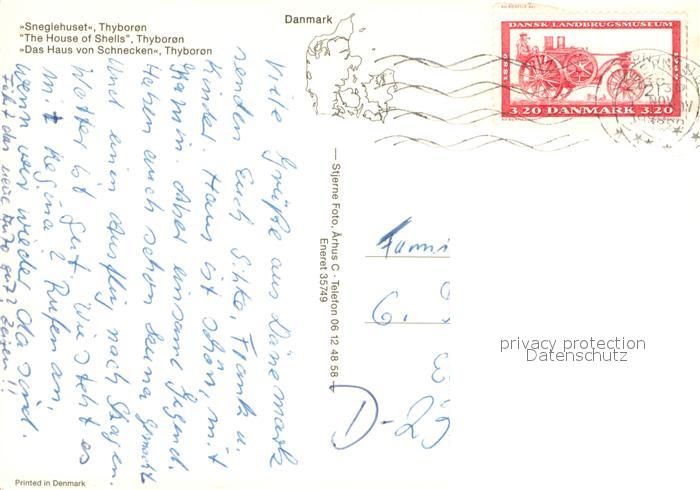 »Sneglehuset«, Thyborøn
"The House of Shells", Thyborøn
»Das Haus von Schnecken«, Thyborøn
Danmark
DANSK LANDBRUGSMUSEUM
1889
1989
3.20 DANMARK 3.20
Viele Grüße aus Dänemark
senden Euch Silke, Frank u.
Kinder. Haus ist schön, mit
Kamin. Aber einsame Gegend.
Haben auch schon Sauna gemacht
und einen Ausflug nach Skagen.
Wetter ist gut. Wie steht es
mit Regina? Rufen an,
wenn wir wieder da sind.
Fährt das neue Auto gut?
Stjerne Foto, Århus C - Telefon 06 12 48 58
Eneret 35749
Fami
G.
D-29
privacy protection
Datenschutz
Printed in Denmark